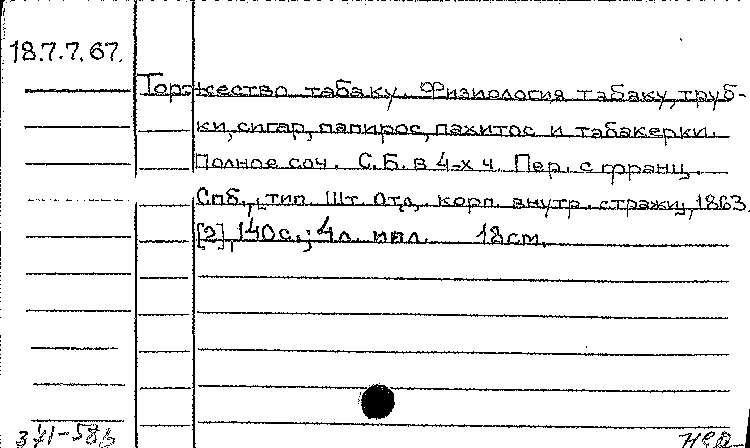 18.7.7.67.
Торжество табаку. Физиология табаку, труб-
ки, сигар, папирос, пахитос и табакерки.
Полное соч. С.Б. в 4-х ч. Пер. с франц.
Спб., тип. Шт. Отд. корп. внутр. стражи, 1863.
[2], 140 с.; 4 л. илл. 18 см.